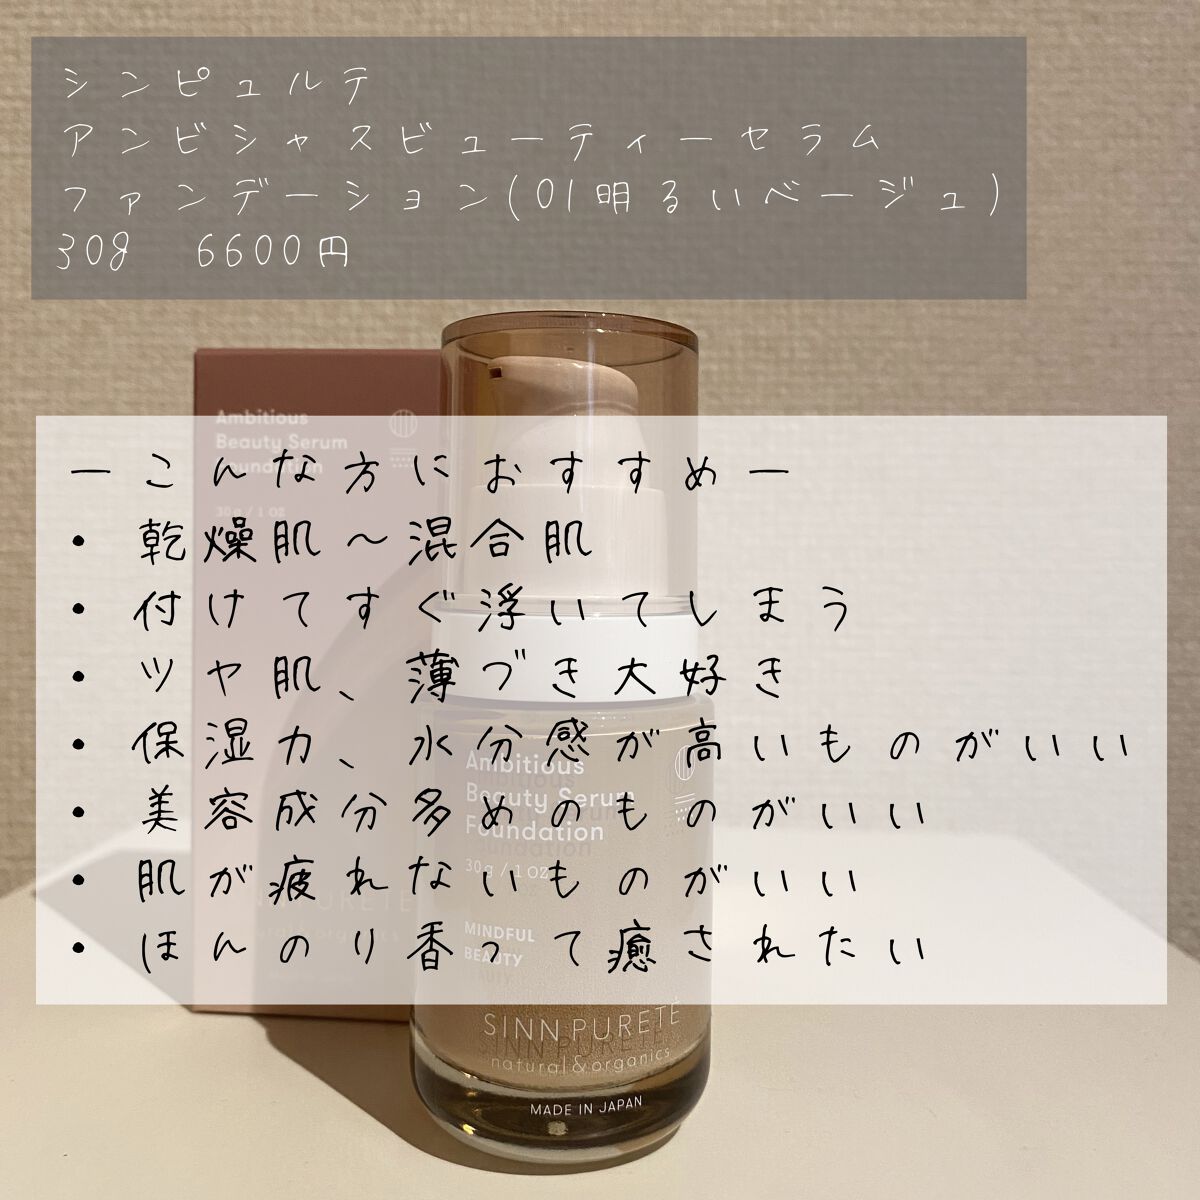 シンピュルテ
アンビシャスビューティーセラム
ファンデーション(01明るいベージュ)
30g 6600円
Ambitious
Beauty Serum
Foundation
30g / 1 OZ
ーこんな方におすすめー
• 乾燥肌〜混合肌
• 付けてすぐ浮いてしまう
• ツヤ肌、薄づき大好き
• 保湿力、水分感が高いものがいい
• 美容成分多めのものがいい
• 肌が疲れないものがいい
• ほんのり香って癒されたい
Ambitious
Beauty Serum
Foundation
30g / 1 OZ
MINDFUL
BEAUTY
SINN PURETÉ
SINN PURETÉ
natural & organics
MADE IN JAPAN